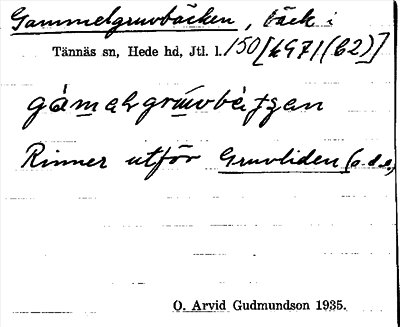 Gammelgruvbäcken, bäck i
Tännäs sn, Hede hd, Jtl. l. 150 [2971 (C2)]
Rinner utför Gruvliden (o.d.o.)
O. Arvid Gudmundson 1935.